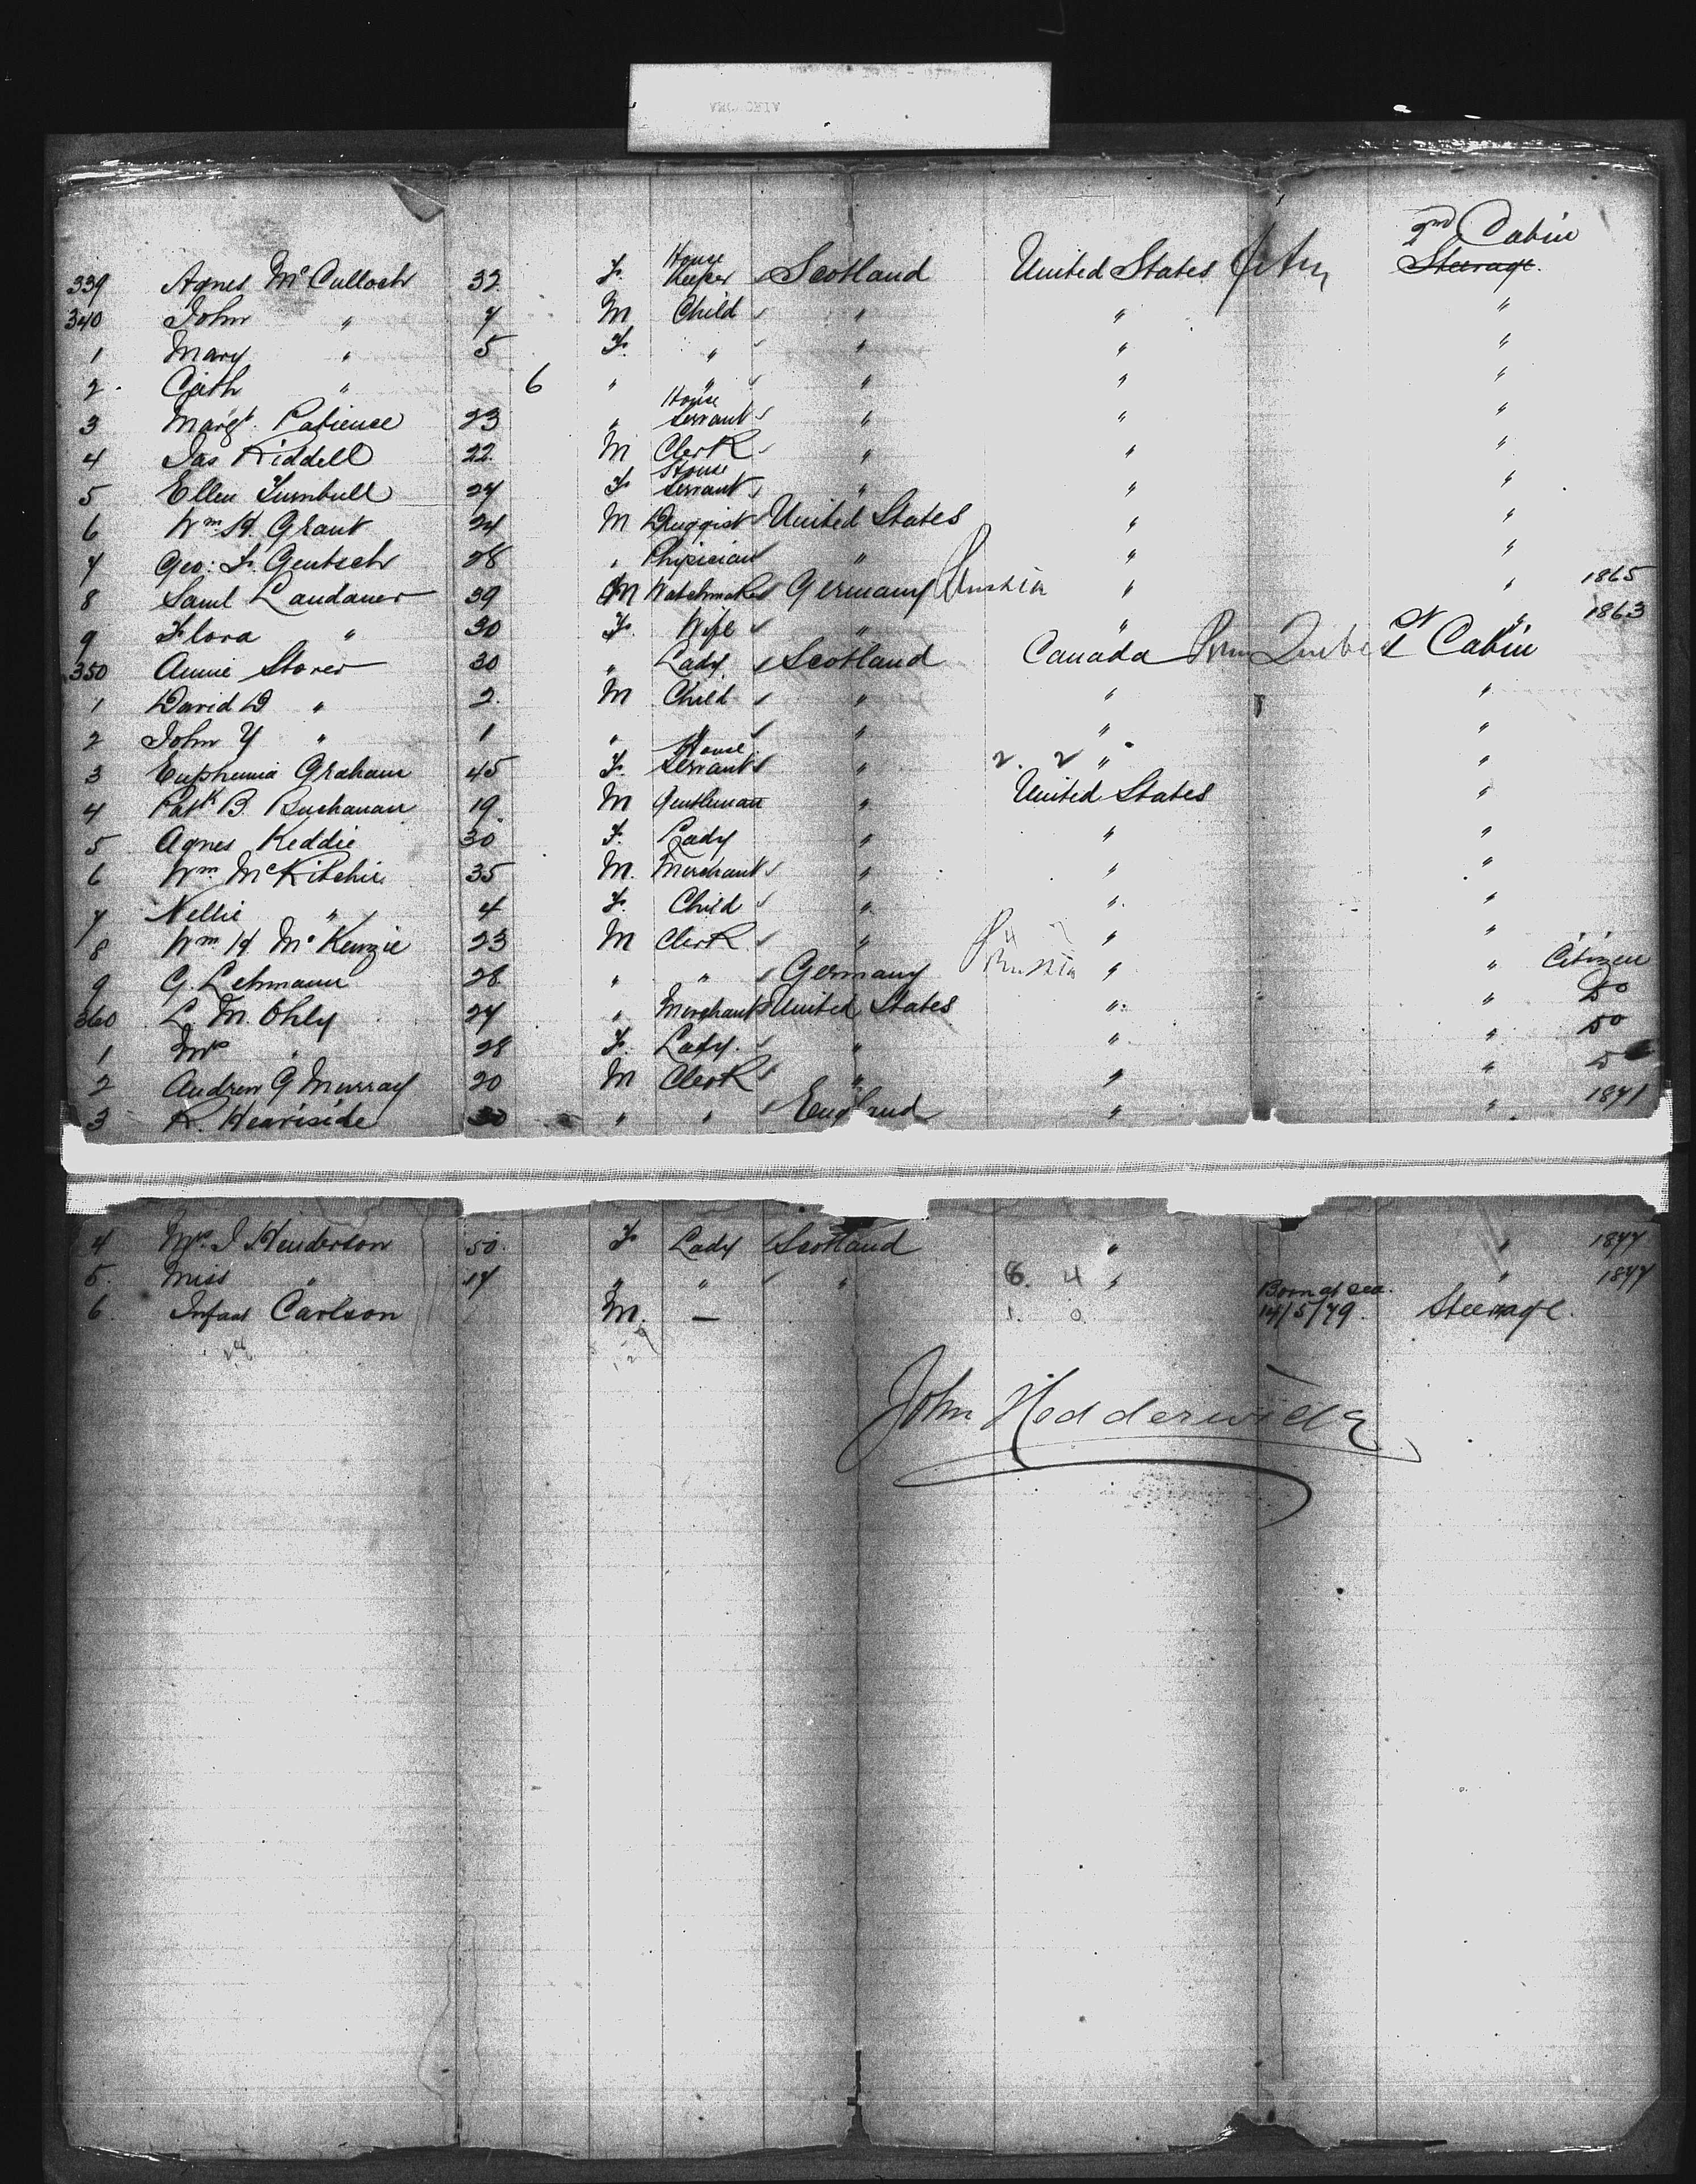 2nd Cabin
339 Agnes McCulloch 32 F. House Keeper Scotland United States Steerage.
340 John " 7 M Child " " "
1 Mary " 5 F. " " " "
2 Cath " 6 " " " " "
3 Margt. Patience 23 " House servant " " "
4 Jas Riddell 22 M Clerk " " "
5 Ellen Turnbull 27 F House servant " " "
6 Wm H. Grant 24 M Druggist United States " "
7 Geo: F. Gentsch 28 " Physician " " "
8 Saml Landauer 39 M Watchmaker Germany Prussia " " 1865
9 Flora " 30 F. Wife " " " 1863
350 Annie Storer 30 " Lady Scotland Canada Cabin
1 David D " 2 M Child " " "
2 John Y " 1 " " " " "
3 Euphemia Graham 45 F. House Servant " 2. 2 " "
4 Patk B. Buchanan 19 M Gentleman " United States "
5 Agnes Keddie 30 F. Lady " " "
6 Wm. McKitchie 35 M. Merchant " " "
7 Nellie " 4 F. Child " " "
8 Wm H McKenzie 23 M Clerk " " "
9 G. Lehmann 28 " " Germany Prussia " " Citizen
360 L. M. Ohly 27 " Merchant United States " " Do
1 Mrs " 28 F. Lady. " " " Do
2 Andrew G Murray 20 M Clerk " " " Do
3 R. Heaviside 30 " " England " " 1871
4 Mrs. J. Henderson 50. F Lady Scotland " " 1877
5. Miss " 17 " " " 6. 4 " " 1877
6 Infant Carlson M. — 1. 0 Born at sea. 14/5/79. Steerage.
John Hedderwick